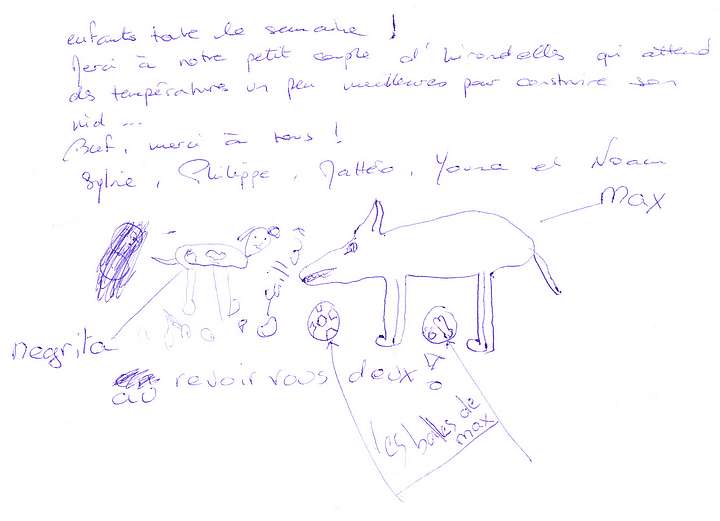 enfants toute la semaine !
Merci à notre petit couple d'hirondelles qui attend
des températures un peu meilleures pour construire son
nid ...
Bref, merci à tous !
Sylvie, Philippe, Mattéo, Youna et Noam
max
negrita
au revoir vous deux !
les balles de
max